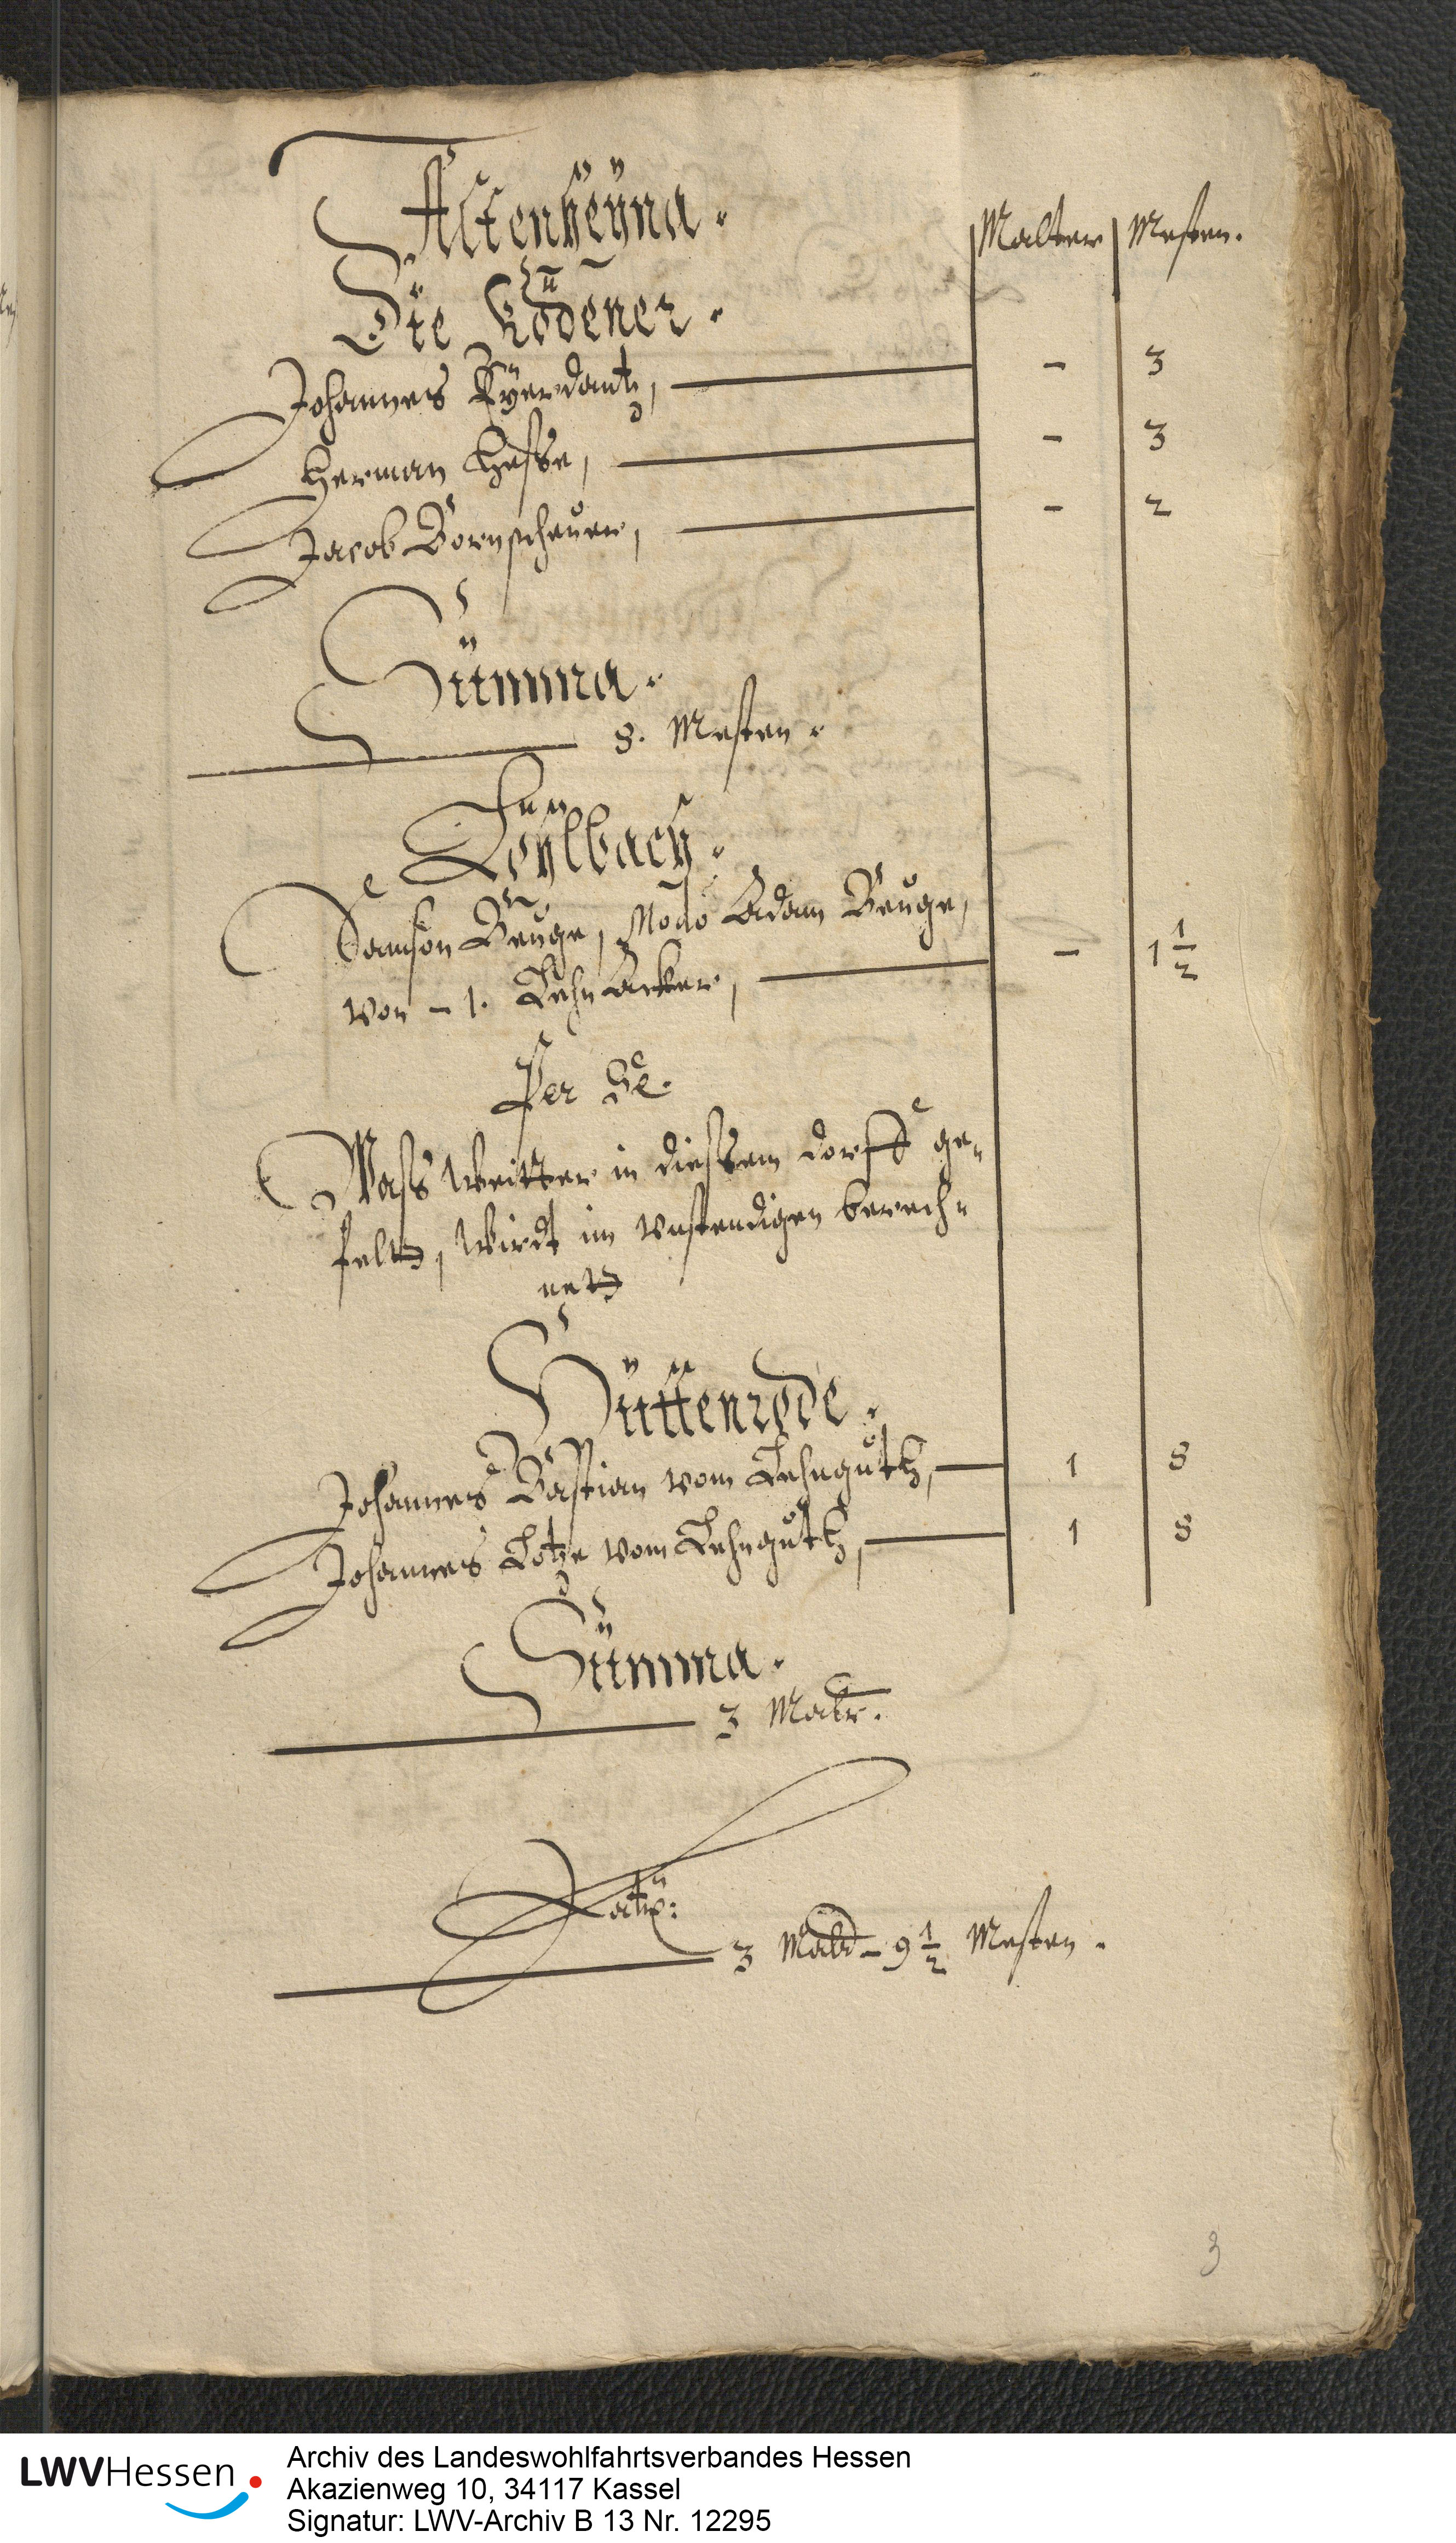 Altenheÿna.
Malter Mesten.
Die Ködener.
Johannes Eÿerdantz, — 3
Herman Hesse, — 3
Jacob Bornscheuer, — 2
Summa.
8. Mesten.
Loÿlbach.
Samson Beuge, Modo Adam Beuge,
von – 1. Lehn Acker, — 1 1/2
Per Se.
Wass Weitter in diessem dorff ge-
felt, Wirdt im unstendigen berech-
net
Hüttenrode.
Johannes Bastian vom Lehnguth, 1 8
Johannes Lotze vom Lehnguth, 1 8
Summa.
3 Maltr.
Latus:
3 Mald – 9 1/2 Mesten.
3
LWVHessen
Archiv des Landeswohlfahrtsverbandes Hessen
Akazienweg 10, 34117 Kassel
Signatur: LWV-Archiv B 13 Nr. 12295